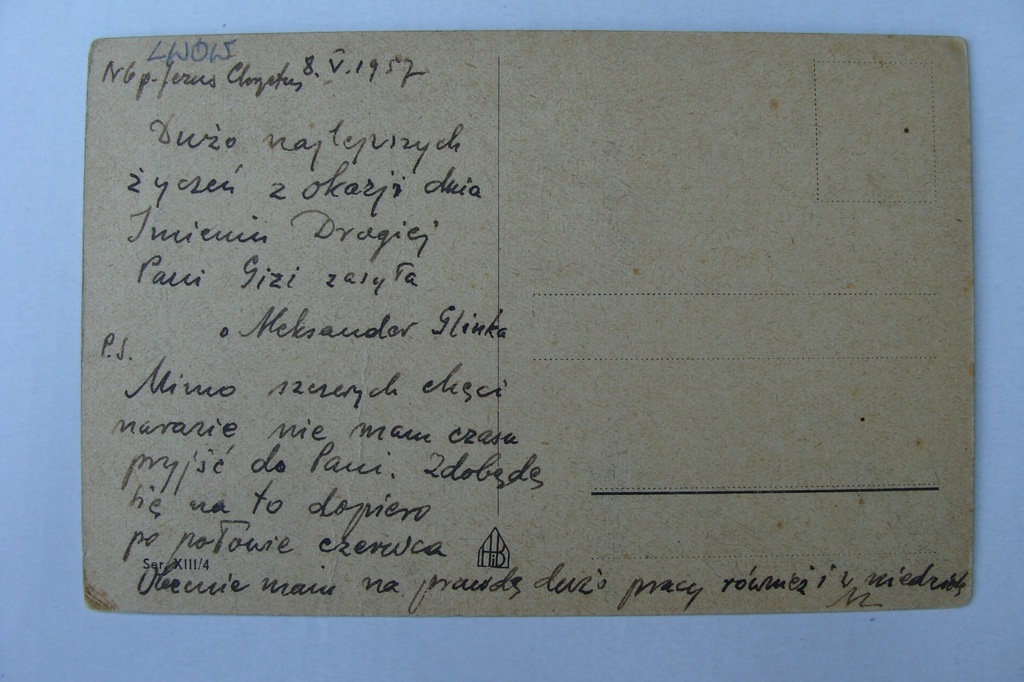 LWÓW
Nb p. Jezus Chrystus 8.V.1957
Dużo najlepszych
życzeń z okazji dnia
Imienin Drogiej
Pani Gizi zasyła
Aleksander Glinka
P.S.
Mimo szczerych chęci
narazie nie mam czasu
pryjść do Pani. Zdobędę
się na to dopiero
po połowie czerwca
Ser. XIII/4
Obecnie mam na prawdę dużo pracy również i w niedzielę